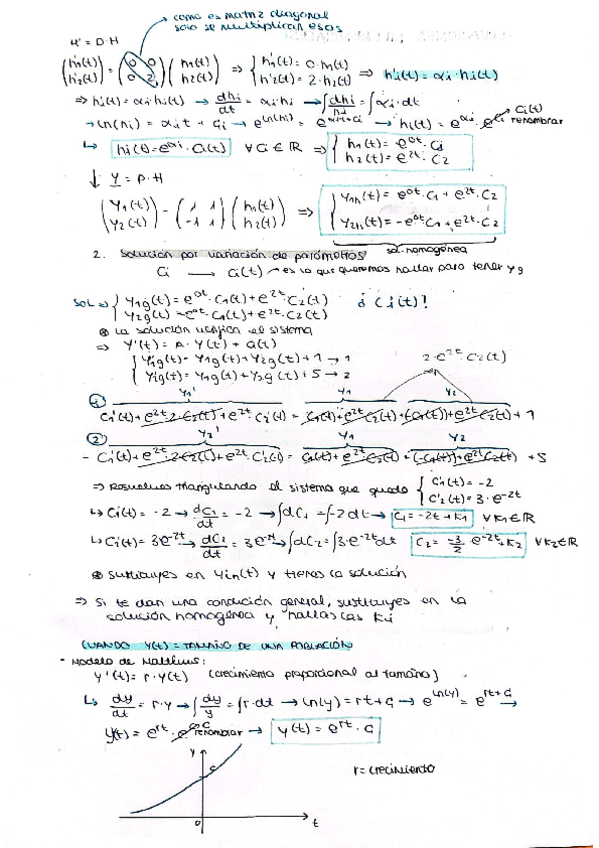 como es matriz diagonal
solo se multiplican esos
H' = D·H
(h'1(t) h'2(t)) = (0 0 0 2)(h1(t) h2(t)) ⇒ { h'1(t) = 0·h1(t) h'2(t) = 2·h2(t) ⇒ h'i(t) = αi·hi(t)
⇒ h'i(t) = αi·hi(t) → dhi/dt = αi·hi → ∫dhi/hi = ∫αi·dt
→ Ln(hi) = αi t + Ci → e^Ln(hi) = e^αit+Ci → hi(t) = e^αi · e^Ci Ci(t) renombrar
↳ hi(t) = e^αi · Ci(t) ∀Ci ∈ ℝ ⇒ { h1(t) = e^0t · C1 h2(t) = e^2t · C2
↓ Y = P·H
(Y1(t) Y2(t)) = (1 1 -1 1)(h1(t) h2(t)) ⇒ { Y1h(t) = e^0t·C1 + e^2t·C2 Y2h(t) = -e^0t C1 + e^2t·C2
sol. homogénea
2. Solución por variación de parámetros
Ci → Ci(t) → es lo que queremos hallar para tener yg
Sol ⇒ { Y1g(t) = e^0t·C1(t) + e^2t·C2(t) Y2g(t) = -e^0t·C1(t) + e^2t·C2(t) ¿Ci(t)?
⊛ La solución verifica el sistema
⇒ Y'(t) = A·Y(t) + G(t)
{ Y1g(t) = Y1g(t) + Y2g(t) + 1 → 1
Y2g(t) = Y1g(t) + Y2g(t) + 5 → 2
2·e^2t·C2(t)
① Y1' Y1 Y2
C1'(t) + e^2t·2·C2(t) + e^2t·C2'(t) = C1(t) + e^2t·C2(t) + (-C1(t)) + e^2t·C2(t) + 1
② Y2' Y1 Y2
- C1'(t) + e^2t·2·C2(t) + e^2t·C2'(t) = C1(t) + e^2t·C2(t) + (-C1(t)) + e^2t·C2(t) + 5
⇒ Resuelves triangulando el sistema que queda { C'1(t) = -2 C'2(t) = 3·e^-2t
↳ C1'(t) = -2 → dC1/dt = -2 → ∫dC1 = ∫-2dt → C1 = -2t + K1 ∀K1 ∈ ℝ
↳ C2'(t) = 3e^-2t → dC2/dt = 3e^-2t → ∫dC2 = ∫3·e^-2t dt C2 = -3/2 e^-2t + K2 ∀K2 ∈ ℝ
⊛ Sustituyes en Yin(t) y tienes la solución
⇒ Si te dan una condición general, sustituyes en la
solución homogénea y hallas las Ki
CUANDO Y(t) = TAMAÑO DE UNA POBLACIÓN
- Modelo de Malthus:
Y'(t) = r·Y(t) (crecimiento proporcional al tamaño)
↳ dy/dt = r·y → ∫dy/y = ∫r·dt → Ln(y) = rt + C → e^Ln(y) = e^rt+C →
Y(t) = e^rt · e^C renombrar → Y(t) = e^rt · C
Y
C
r = crecimiento
0
t